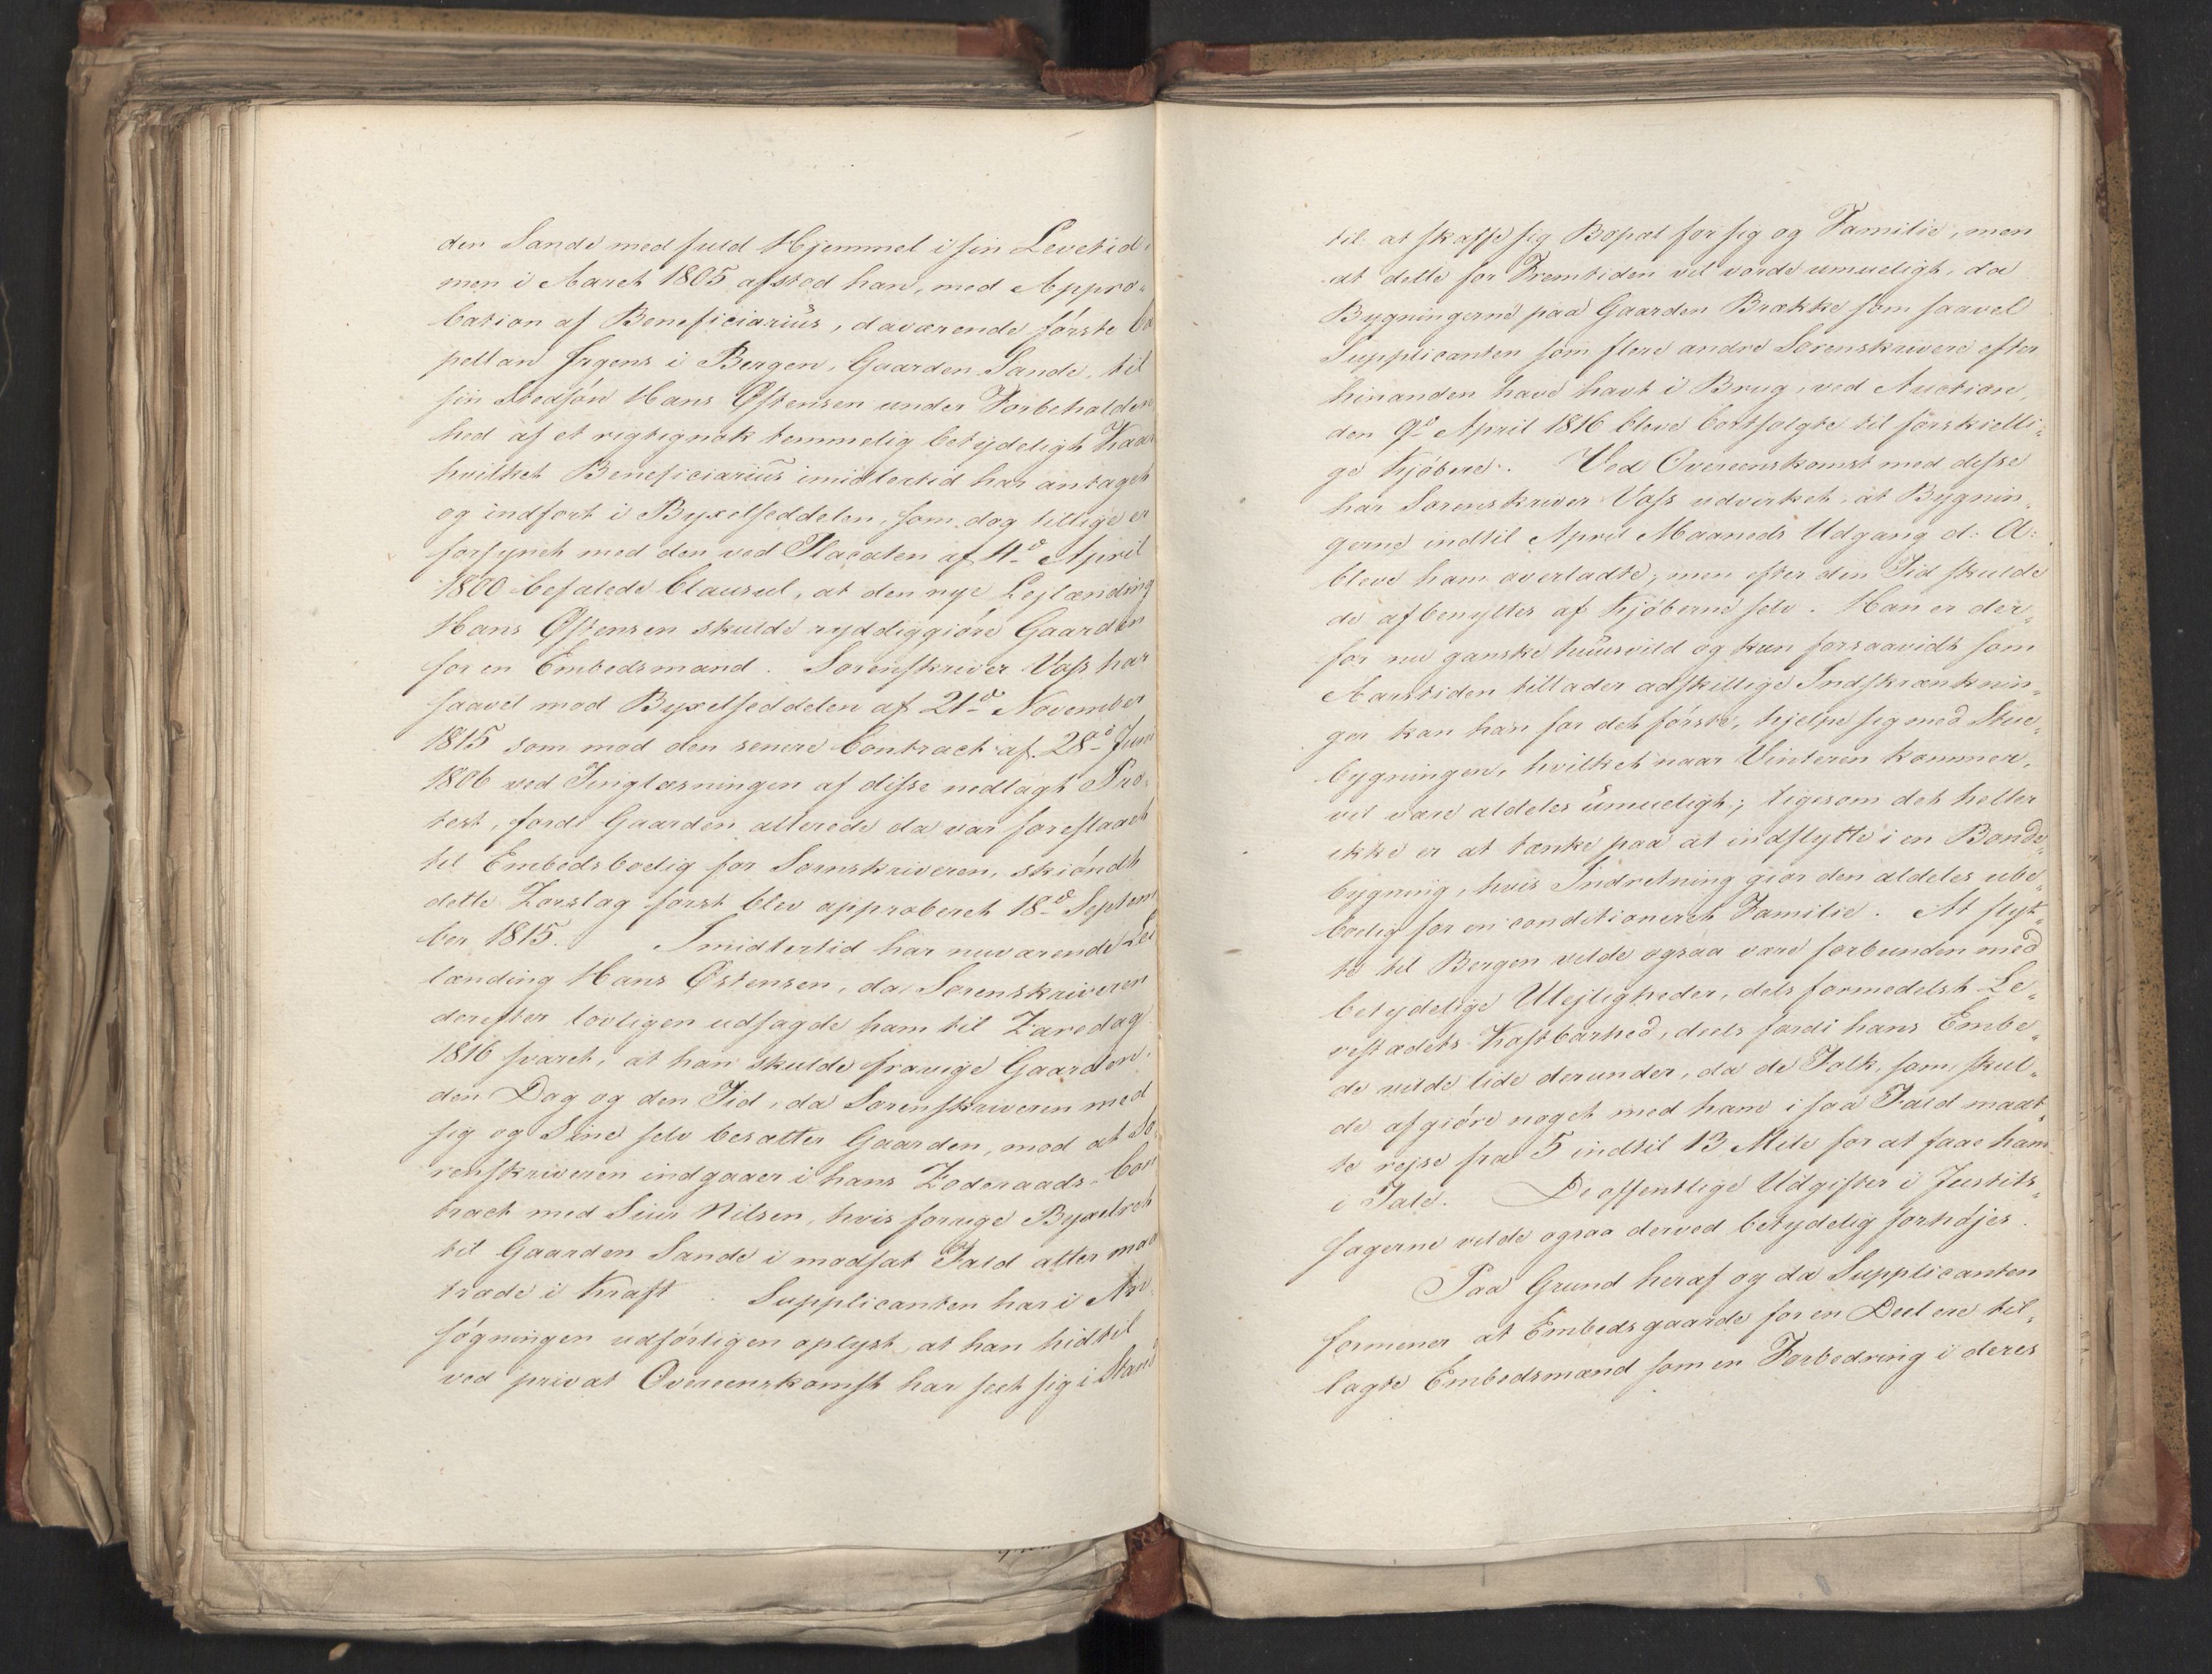 den Sande med fuld Hjemmel i sin Levetid,
men i Aaret 1805 afstod han, med Appro-
bation af Beneficiarius, daværende første Ca
pellan Irgens i Bergen, Gaarden Sande, til
sin Stedsøn Hans Østensen under Forbeholden
hed af et rigtignok temmelig betydeligt Kaar
hvilket Beneficiarius imidlertid har antaget
og indført i Byxelseddelen, som dog tillige er
forsynet med den ved Placaten af 4de April
1800 befalede Clausul, at den nye Lejlænding
Hans Østensen skulde ryddiggiøre Gaarden
for en Embedsmand. Sorenskriver Vass har
saavel mod Byxelseddelen af 21de November
1815 som mod den senere Contract af 28de Juni
1806 ved Tinglæsningen af disse nedlagt Pro-
test, fordi Gaarden allerede da var foreslaaet
til Embedsbolig for Sorenskriveren, skiøndt
dette Forslag først blev approberet 18de Septem
ber 1815. Imidlertid har nuværende Lei
lænding Hans Østensen, da Sorenskriveren
derefter lovligen udsagde ham til Faredag
1816 svaret, at han skulde fravige Gaarden,
den Dag og den Tid, da Sorenskriveren med
sig og Sine selv besætter Gaarden, mod at So
renskriveren indgaaer i hans Foderaads-Con
tract med Siur Nilsen, hvis forrige Byxelret
til Gaarden Sande i modsat Fald atter maa
træde i Kraft. Supplicanten har i An-
søgningen udførligen oplyst, at han hidtil
ved privat Overeenskomst har seet sig i Stand
til at skaffe sig Bopæl for sig og Familie, men
at dette for Fremtiden vil vorde umueligt, da
Bygningerne paa Gaarden Brække som saavel
Supplicanten som flere andre Sorenskrivere efter
hinanden have havt i Brug, ved Auction,
den 9de April 1816 bleve bortsolgte til forskielli-
ge Kjøbere. Ved Overeenskomst med disse
har Sorenskriver Vass udvirket, at Bygnin-
gerne indtil April Maaneds Udgang d: A:
bleve ham overladte, men efter den Tid skulde
de afbenyttes af Kjøberne selv. Han er der-
for nu ganske huusvild og kun forsaavidt som
Aarstiden tillader adskillige Indskrænknin-
ger kan han for det første, hjelpe sig med Stue-
bygningen, hvilket naar Vinteren kommer,
vil være aldeles umueligt; ligesom det heller
ikke er at tænke paa at indflytte i en Bonde-
bygning, hvis Indretning giør den aldeles ube-
boelig for en conditioneret Familie. At flyt-
te til Bergen vilde ogsaa være forbunden med
betydelige Ulejligheder, dels formedelst Le-
vestædets Kostbarhed, deels fordi hans Embe-
de vilde lide derunder, da de Folk, som skul-
de afgiøre noget med ham i saa Fald maat-
te rejse fra 5 indtil 13 Mile for at faae ham
i Tale. De offentlige Udgifter i Justits-
sagerne vilde ogsaa derved betydelig forhøjes.
Paa Grund heraf og da Supplicanten
formener at Embedsgaarde for en Deel ere til-
lagte Embedsmænd som en Forbedring i deres